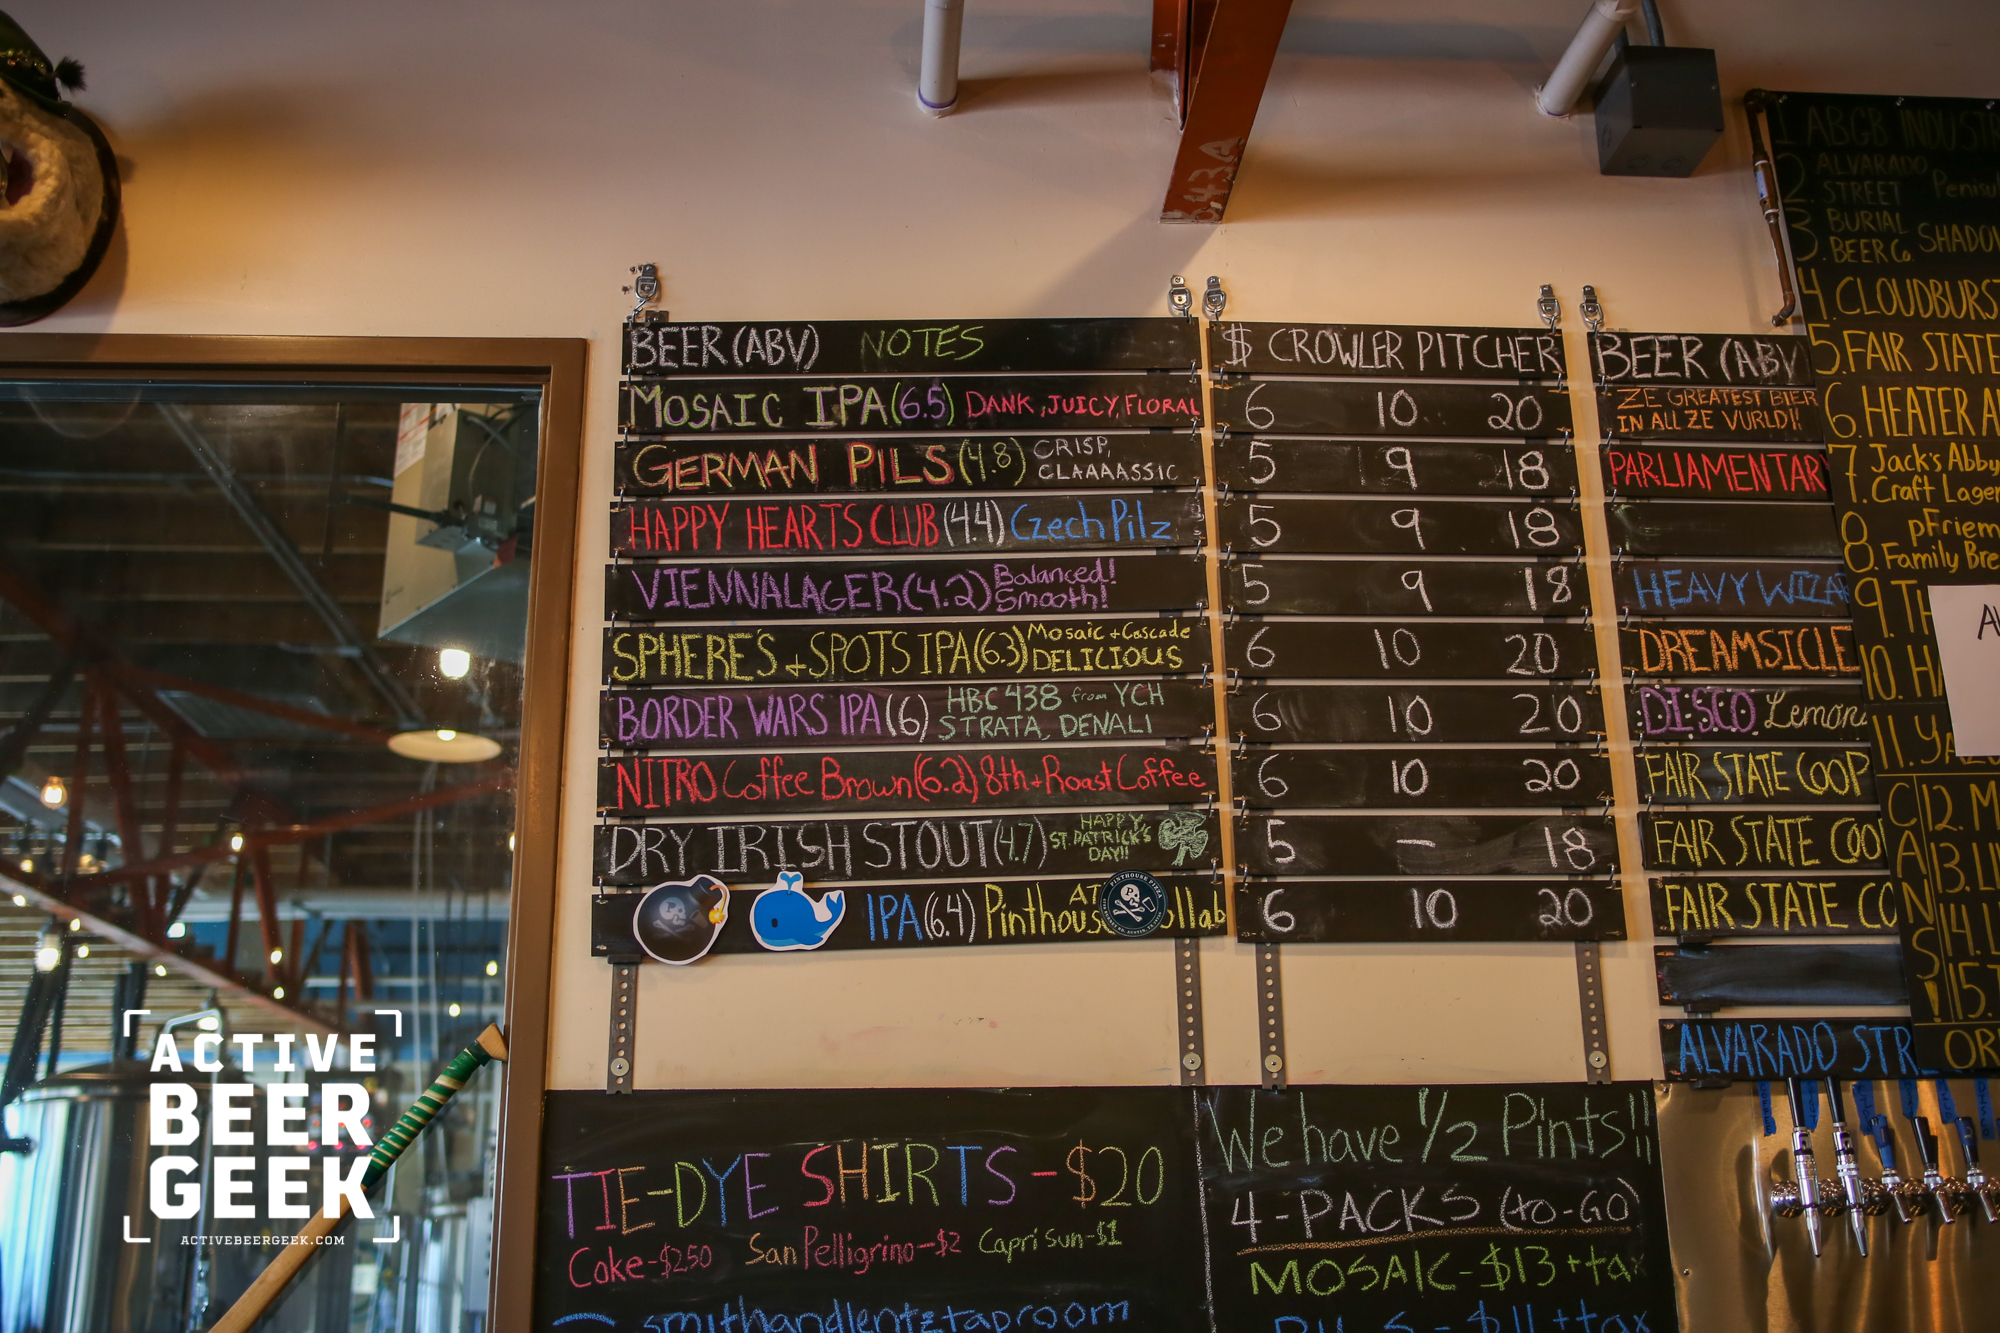 BEER (ABV) NOTES
$ CROWLER PITCHER
MOSAIC IPA (6.5) DANK, JUICY, FLORAL
6 10 20
GERMAN PILS (4.8) CRISP,
CLAAAASSIC
5 9 18
HAPPY HEARTS CLUB (4.4) Czech Pilz
5 9 18
VIENNA LAGER (4.2) Balanced!
Smooth!
5 9 18
SPHERE'S + SPOTS IPA (6.3) Mosaic + Cascade
DELICIOUS
6 10 20
BORDER WARS IPA (6) HBC 438 from YCH
STRATA, DENALI
6 10 20
NITRO Coffee Brown (6.2) 8th + Roast Coffee
6 10 20
DRY IRISH STOUT (4.7) HAPPY
ST. PATRICK'S
DAY!!
5 - 18
IPA (6.4) Pinthous ollab
AT
6 10 20
BEER (ABV
ZE GREATEST BIER
IN ALL ZE VURLD!!
PARLIAMENTAR
HEAVY WIZA
DREAMSICLE
DISCO Lemon
FAIR STATE COOP
FAIR STATE COO
FAIR STATE CO
ALVARADO STR
1 ABGB INDUST
2. ALVARADO
STREET
3. BURIAL
BEER Co. SHADO
4. CLOUDBURST
5. FAIR STATE
6. HEATER A
7. Jack's Abby
Craft Lager
8. pFriem
Family Bre
9. TH
10. HA
11. YA
CANS!
12. M
13. LI
14. L
15.
OR
TIE-DYE SHIRTS - $20
Coke - $2.50 San Pelligrino - $2 Capri Sun - $1
smithandlentztaproom
We have 1/2 Pints!!
4-PACKS (to-GO)
MOSAIC - $13 + tax
PILS - $11 + tax
ACTIVE
BEER
GEEK
ACTIVEBEERGEEK.COM